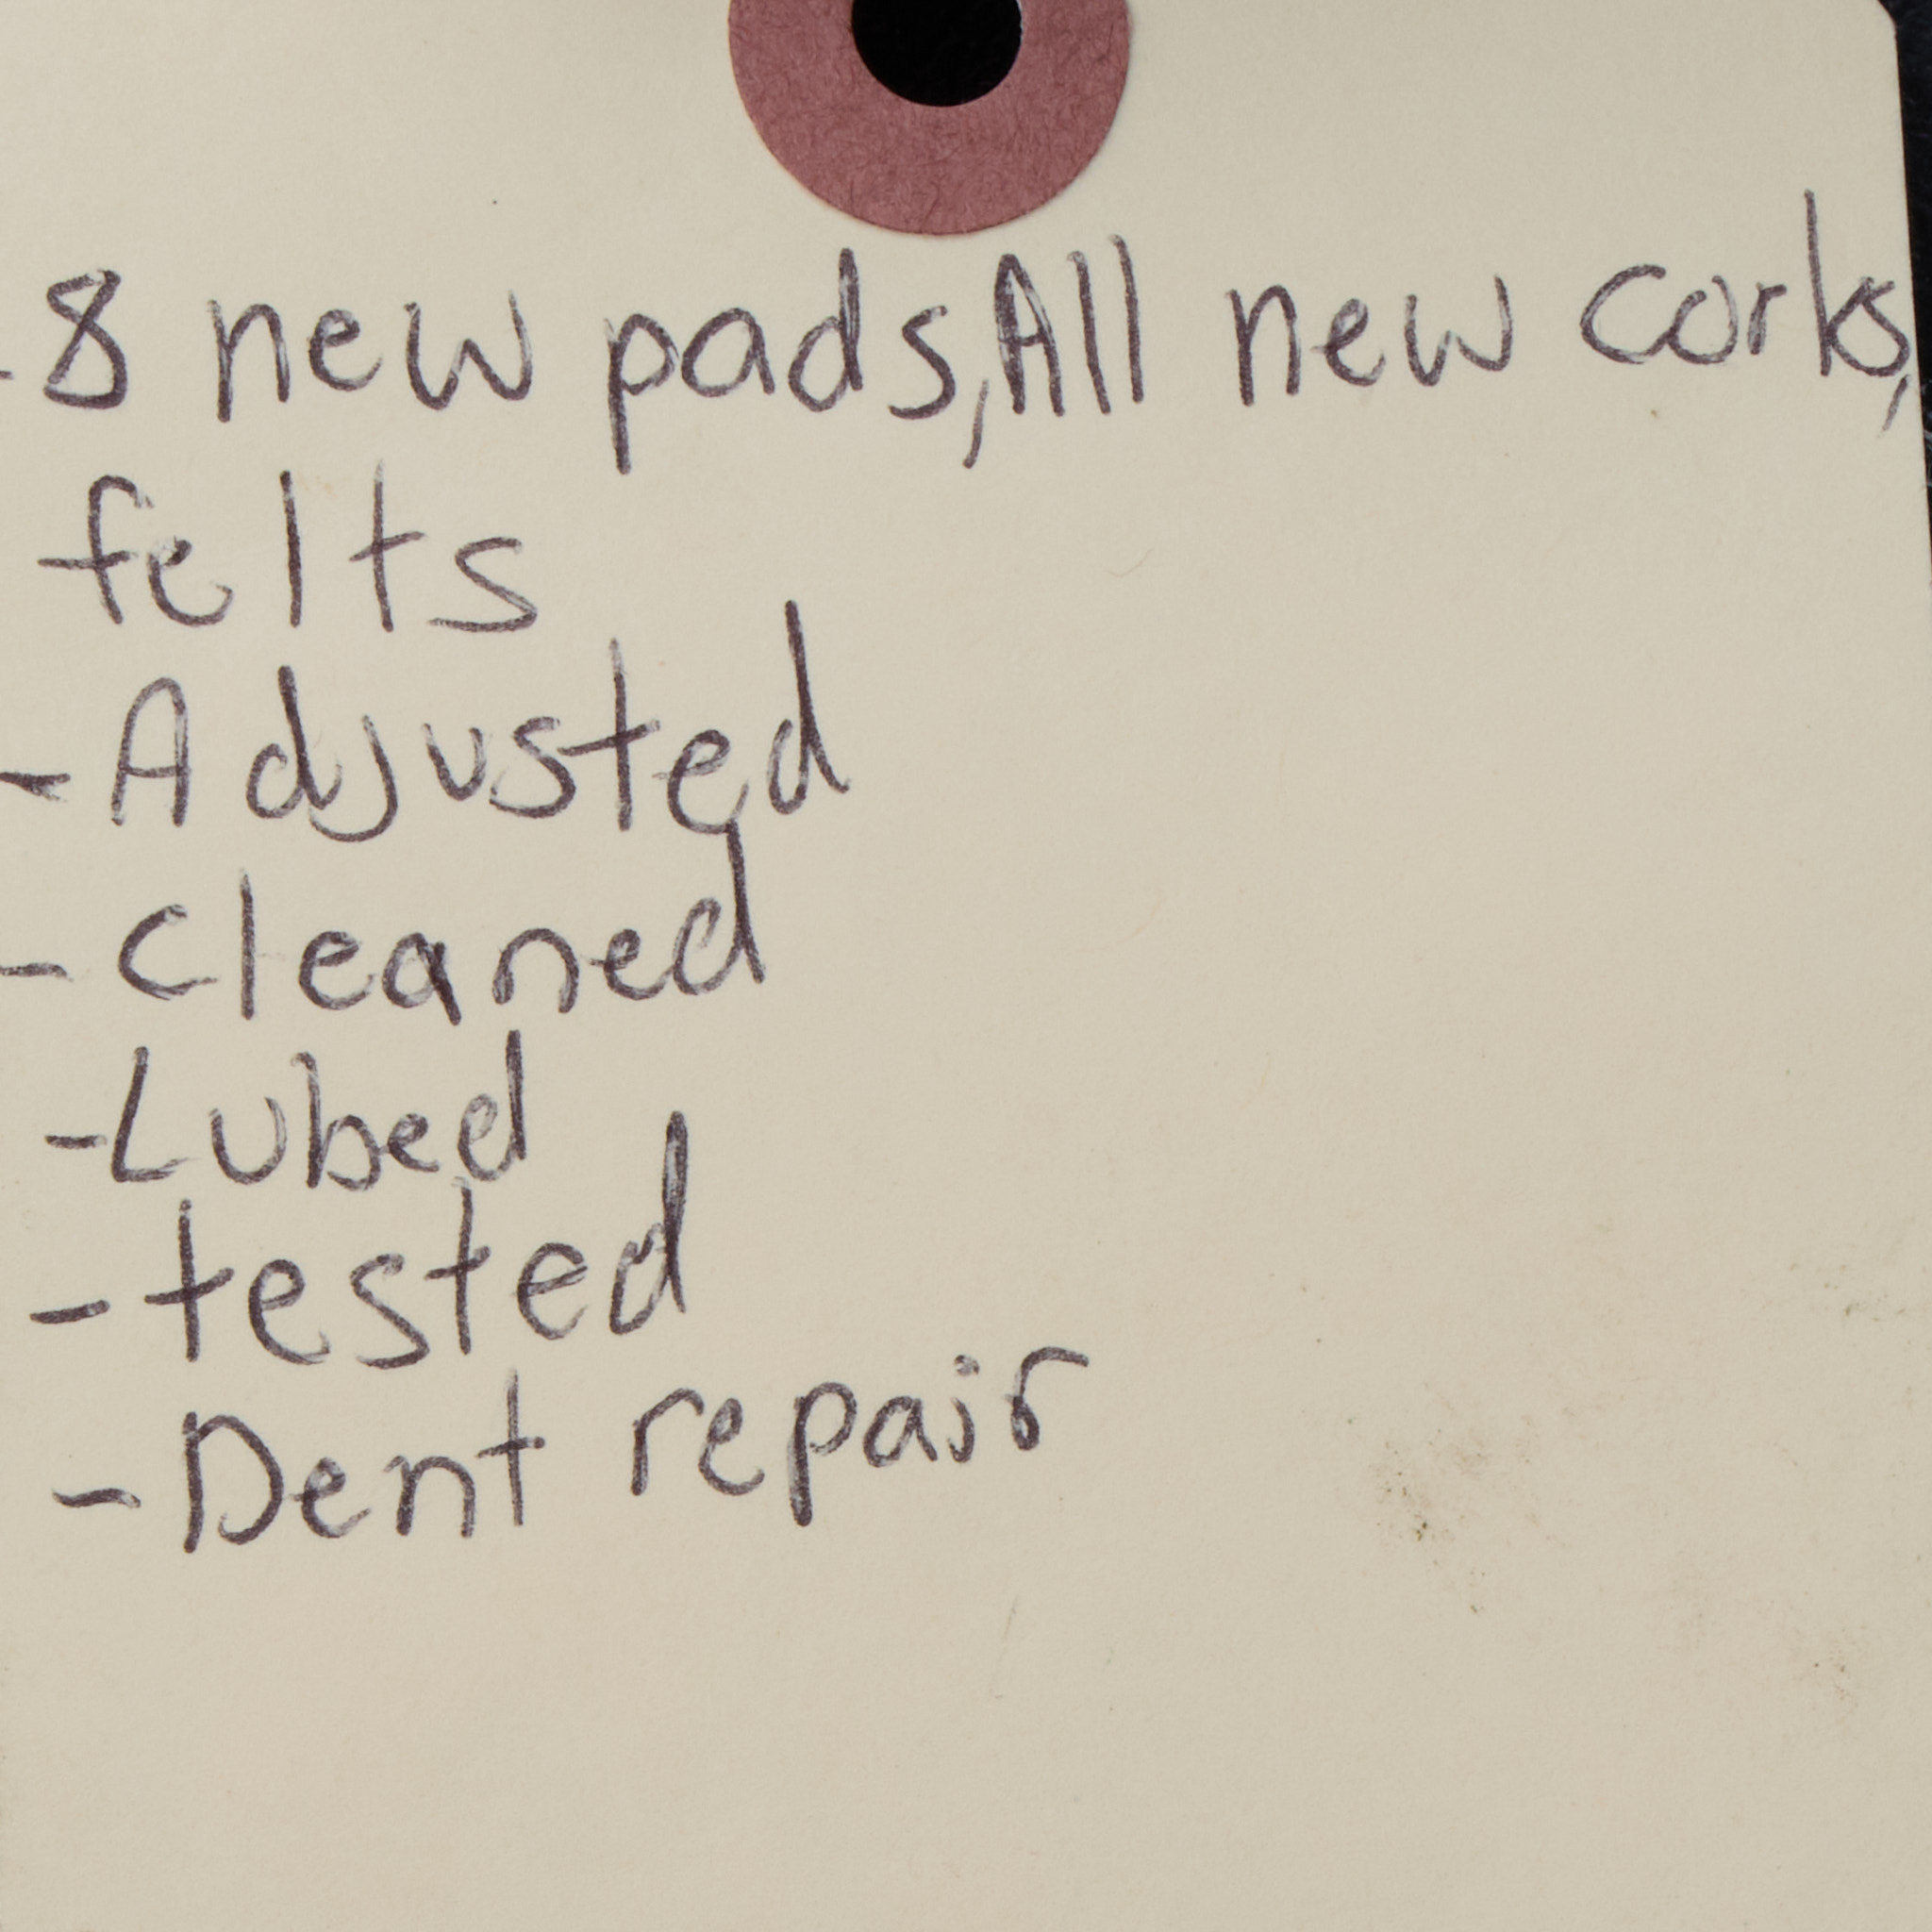 -8 new pads, All new corks,
felts
- Adjusted
- Cleaned
- Lubed
- tested
- Dent repair